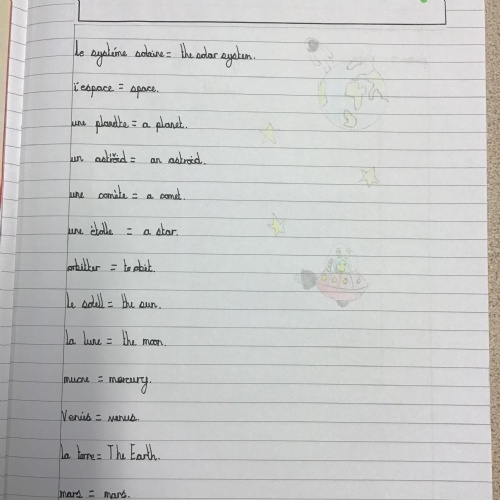 le systéme solaire = the solar system.
l'espace = space.
une planète = a planet.
un astëroid = an astroid.
une comète = a comet.
une ètolle = a star.
orbitter = to obit.
le solell = the sun.
la lune = the moon.
mucre = morcury.
Venüs = venus.
la terre = The Earth.
mars = mars.